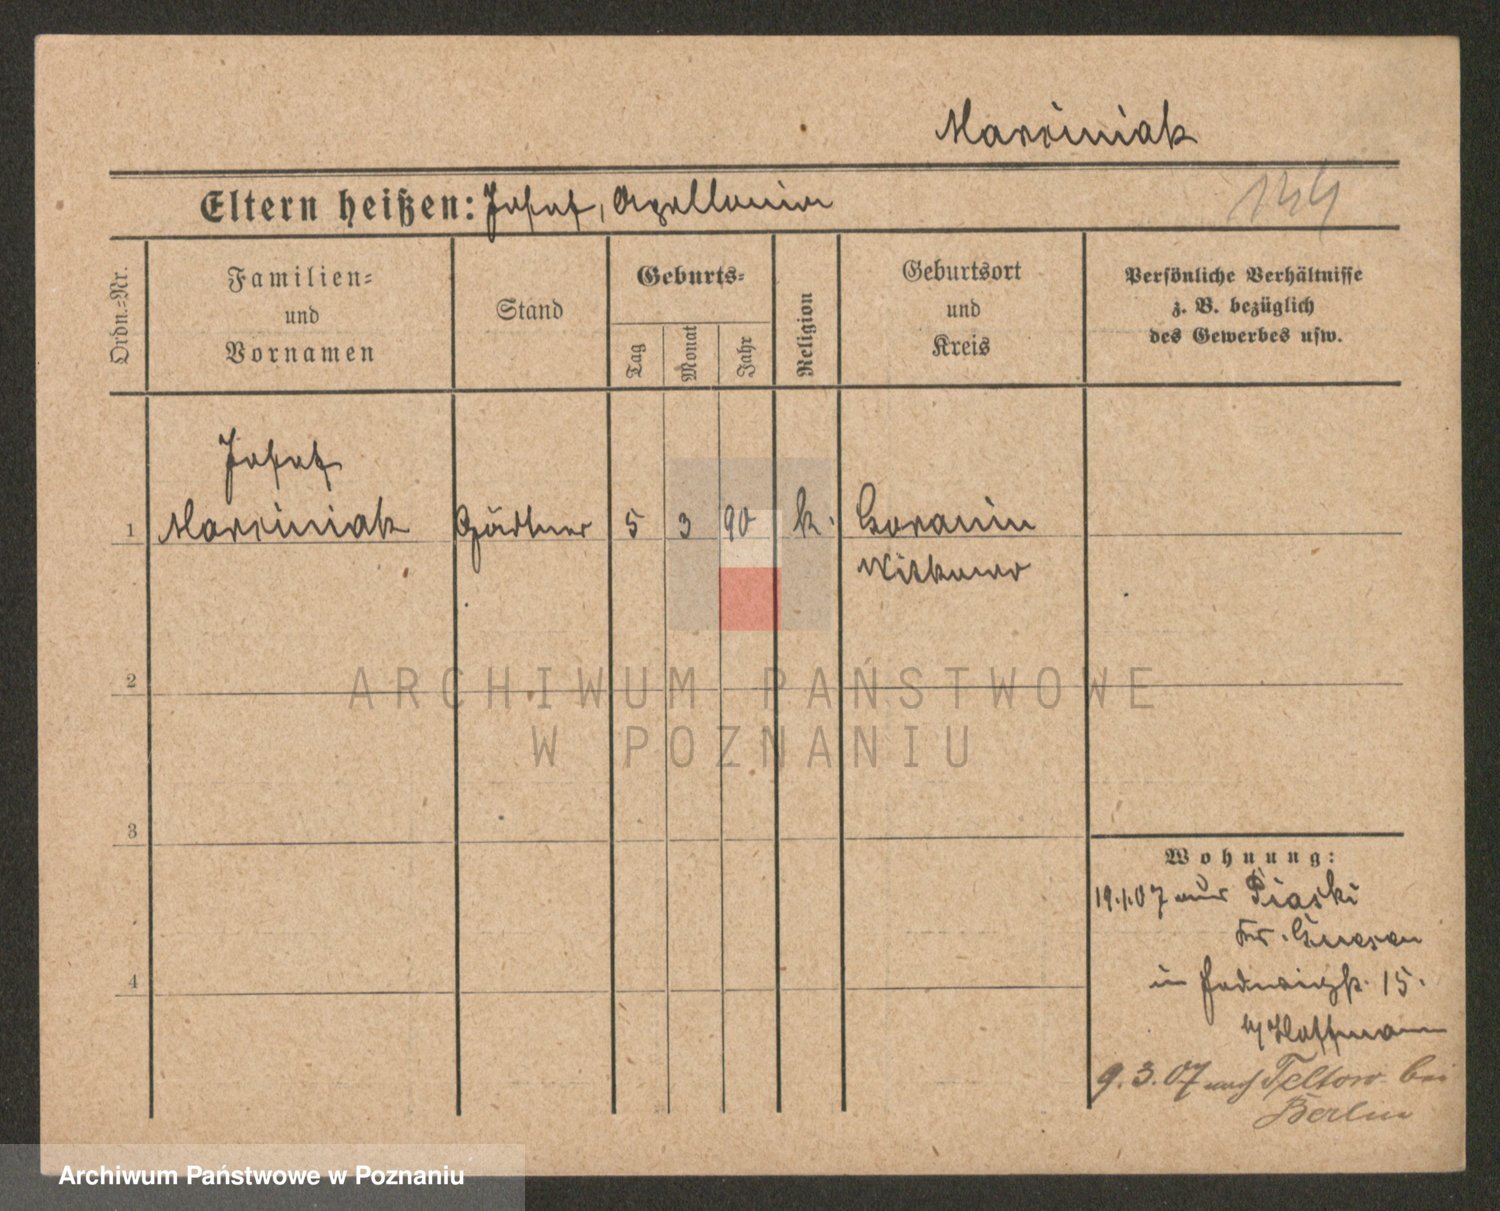 Marciniak
Eltern heißen: Josef, Apollonia
144
Ordn.=Nr.
Familien=
und
Vornamen
Stand
Geburts=
Tag
Monat
Jahr
Religion
Geburtsort
und
Kreis
Persönliche Verhältnisse
z. B. bezüglich
des Gewerbes usw.
Josef
1 Marciniak Gärtner 5 3 90 k. Goranin
Witkowo
2
3
4
Wohnung:
19.1.07 aus Piaski
Kr. Gnesen
in Hedwigstr. 15.
b/ Hoffmann
9.3.07 nach Teltow bei
Berlin
ARCHIWUM PAŃSTWOWE
W POZNANIU
Archiwum Państwowe w Poznaniu